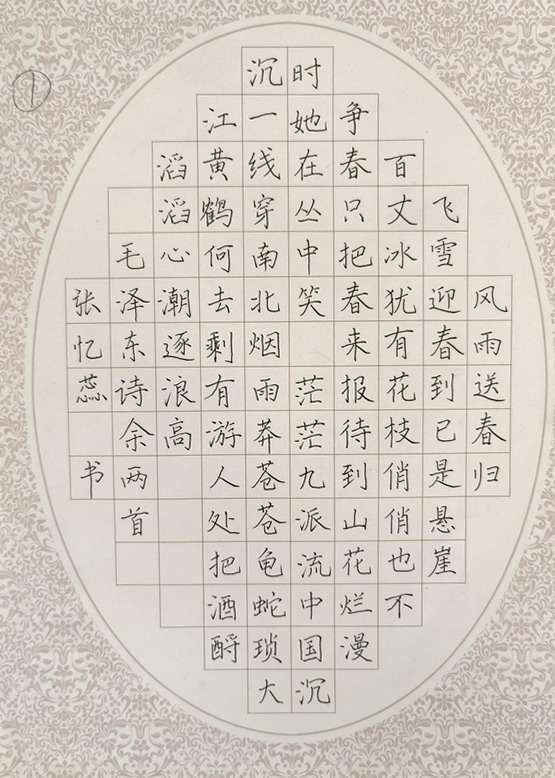 ①
风雨送春归
飞雪迎春到已是悬崖
百丈冰犹有花枝俏俏也不
争春只把春来报待到山花烂漫
时她在丛中笑 茫茫九派流中国沉
沉一线穿南北烟雨莽苍苍龟蛇琐大
江黄鹤何去剩有游人处把酒酹
滔滔心潮逐浪高
毛泽东诗余两首
张忆蕊 书